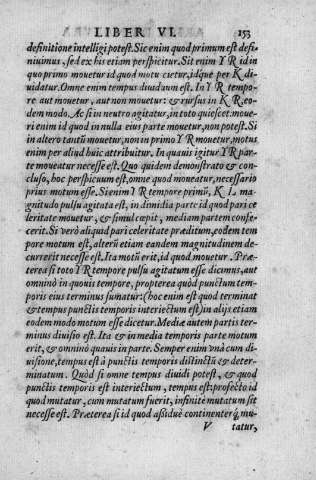 LIBER VI. 253
definitione intelligi potest. Sic enim quod primum est defi-
niuimus, sed ex his etiam perspicitur. Sit enim Y R id in
quo primo mouetur id quod motu cietur, idque per K di-
uidatur. Omne enim tempus diuiduum est. In Y R tempo-
re aut mouetur, aut non mouetur: & rursus in K R. eo-
dem modo. Ac si in neutro agitatur, in toto quiescet. moue-
ri enim id quod in nulla eius parte mouetur, non potest. Si
in altero tantũ mouetur, non in primo Y R mouetur, motus
enim per aliud huic attribuitur. In quauis igitur Y R par-
te moueatur necesse est. Quo quidem demonstrato & con-
cluso, hoc perspicuum est, omne quod moueatur, necessario
prius motum esse. Si enim Y R tempore primũ, K L ma-
gnitudo pulsu agitata est, in dimidia parte id quod pari ce
leritate mouetur, & simul cœpit, mediam partem confe-
cerit. Si verò aliquid pari celeritate præditum, eodem tem
pore motum est, alterũ etiam eandem magnitudinem de-
currerit necesse est. Ita motũ erit, id quod mouetur. Præ-
terea si toto Y R tempore pulsu agitatum esse dicimus, aut
omnino in quouis tempore, propterea quòd punctum tem-
poris eius terminus sumatur: (hoc enim est quod terminat
& tempus punctis temporis interiectum est) in alijs etiam
eodem modo motum esse dicetur. Mediæ autem partis ter-
minus diuisio est. Ita & in media temporis parte motum
erit, & omnino quauis in parte. Semper enim vnà cum di-
uisione, tempus est à punctis temporis distinctũ & deter-
minatum. Quòd si omne tempus diuidi potest, & quod
punctis temporis est interiectum, tempus est: profecto id
quod mutatur, cum mutatum fuerit, infinitè mutatum sit
necesse est. Præterea si id quod assiduè continenterq́; mu-
V tatur,